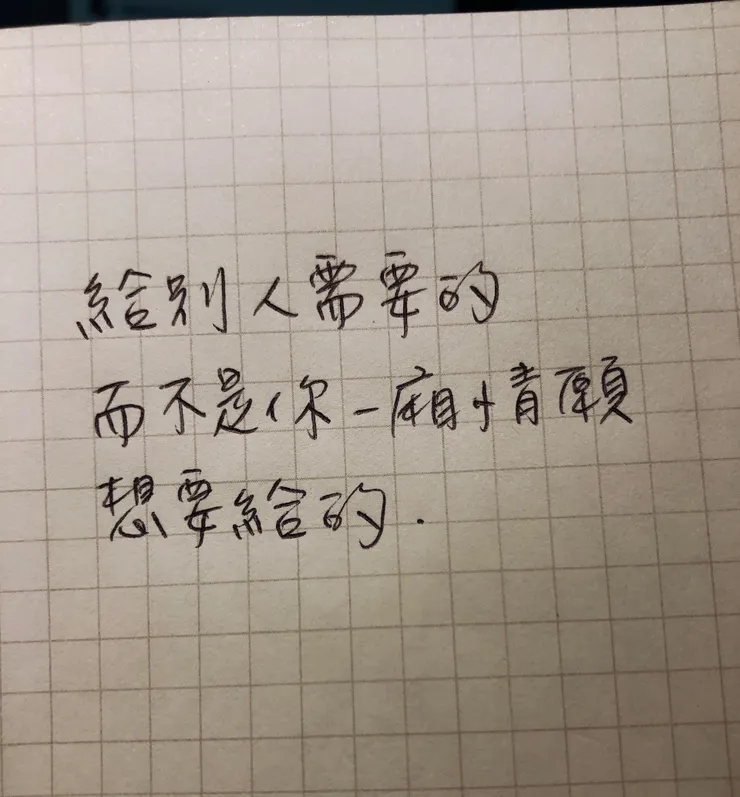 給別人需要的
而不是你一廂情願
想要給的.